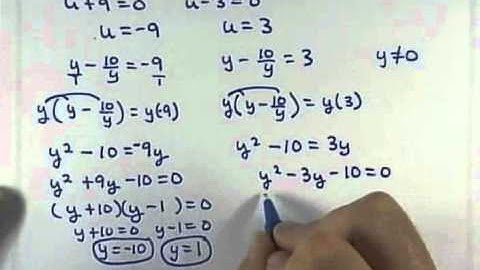 u+9=0 u-3=0
u=-9 u=3
y/1 - 10/y = -9/1 y - 10/y = 3 y≠0
y(y - 10/y) = y(-9) y(y - 10/y) = y(3)
y² - 10 = -9y y² - 10 = 3y
y² + 9y - 10 = 0 y² - 3y - 10 = 0
(y+10)(y-1) = 0
y+10=0 y-1=0
y=-10 y=1